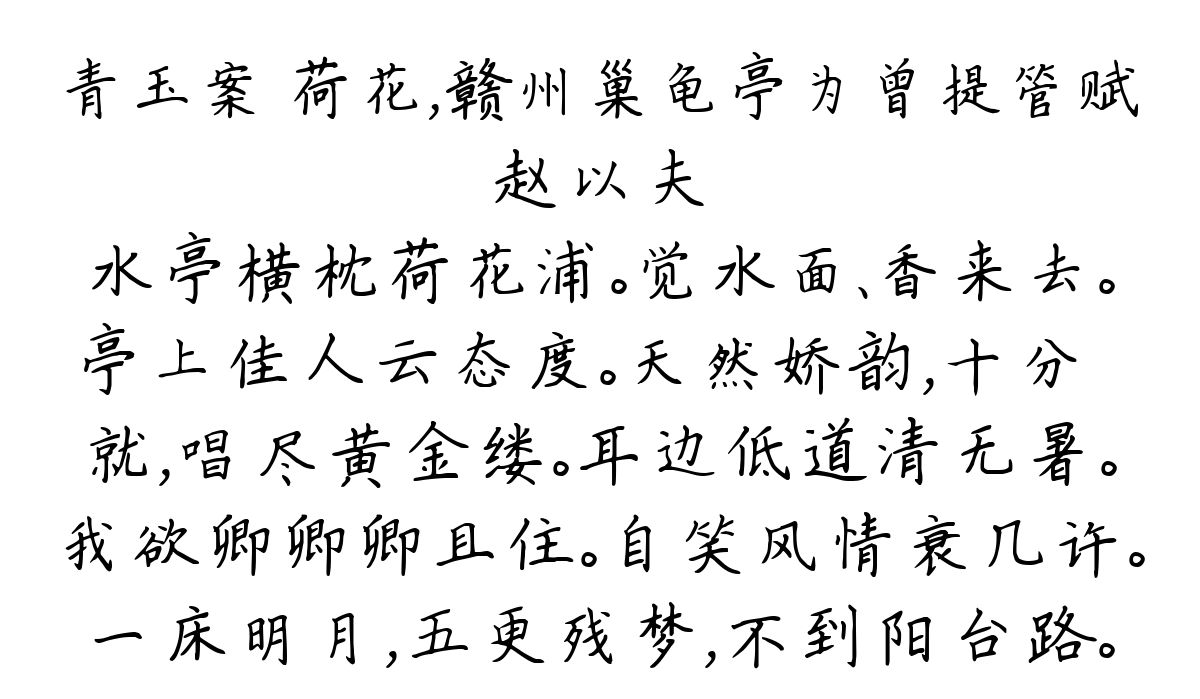 青玉案 荷花,赣州巢龟亭为曾提管赋
赵以夫
水亭横枕荷花浦。觉水面、香来去。
亭上佳人云态度。天然娇韵,十分
就,唱尽黄金缕。耳边低道清无暑。
我欲卿卿卿且住。自笑风情衰几许。
一床明月,五更残梦,不到阳台路。